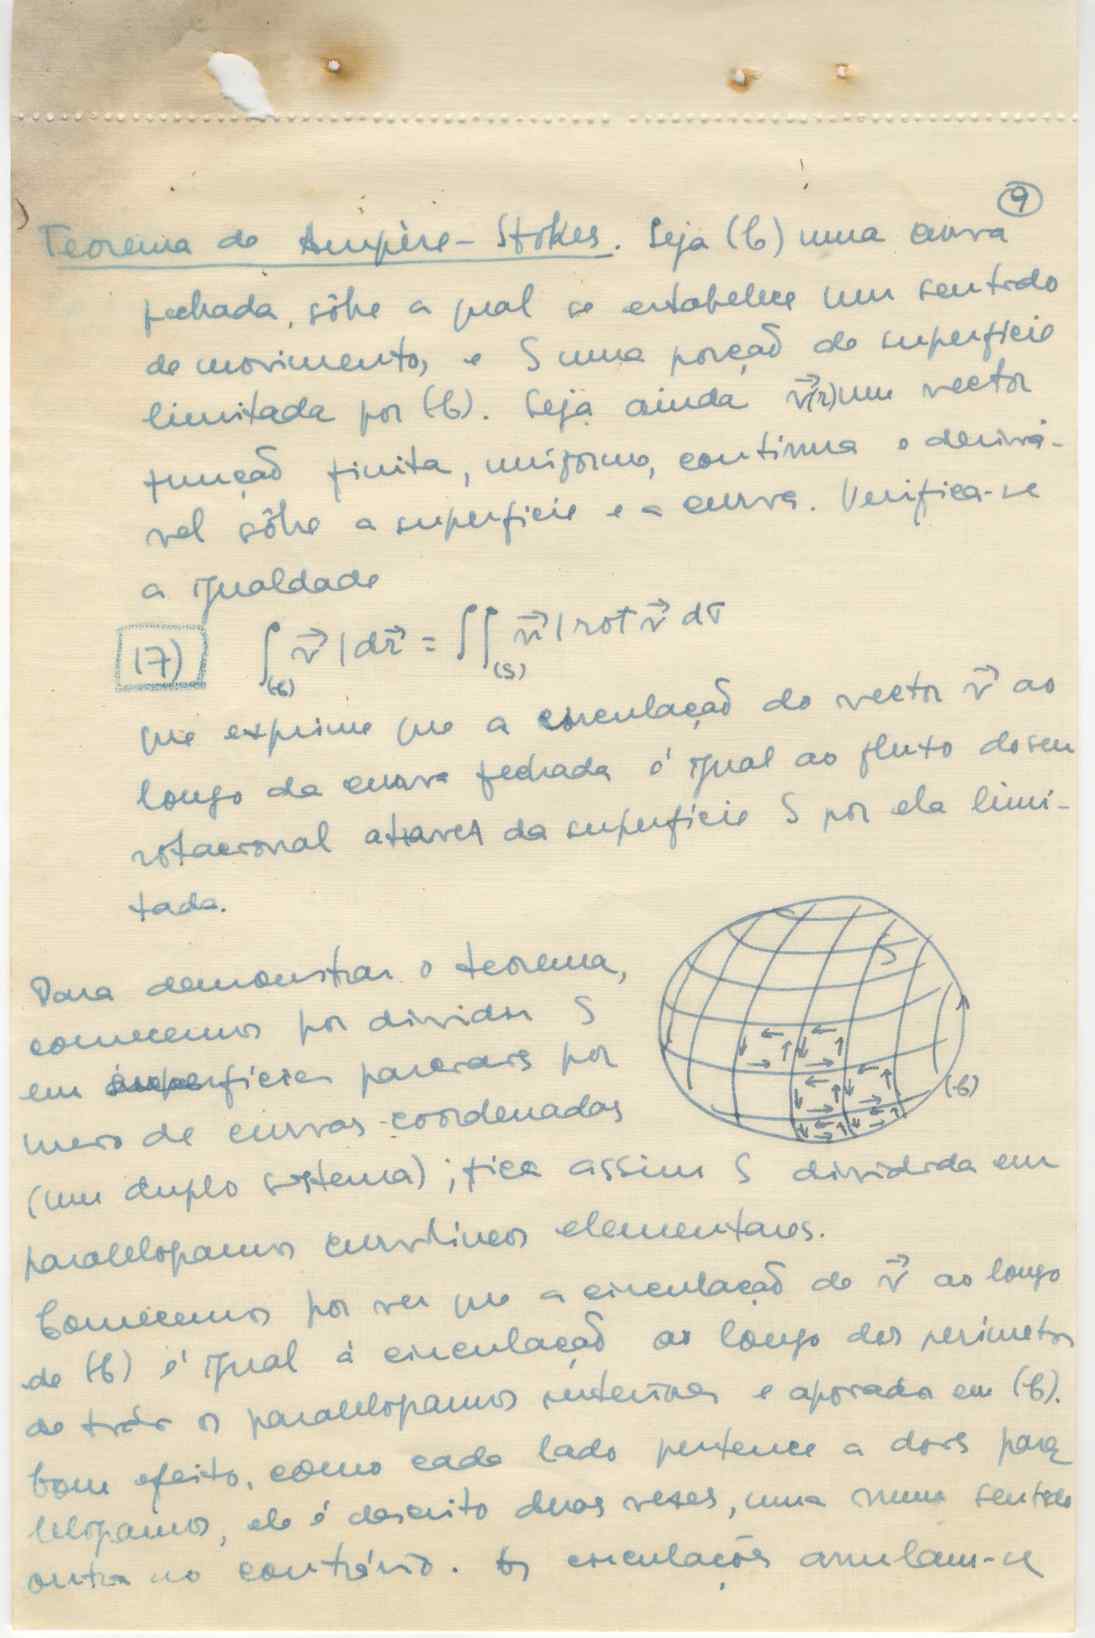 9
Teorema de Ampère-Stokes. Seja (C) uma curva
fechada, sôbre a qual se estabelece um sentido
de movimento, e S uma porção de superfície
limitada por (C). Seja ainda v⃗(r) um vector
função finita, uniforme, contínua e derivá-
vel sôbre a superfície e a curva. Verifica-se
a igualdade
17) ∫(C) v⃗ | dr⃗ = ∫∫(S) n⃗ | rot v⃗ dσ
que exprime que a circulação do vector v⃗ ao
longo da curva fechada é igual ao fluxo do seu
rotacional através da superfície S por ela limi-
tada.
S
(C)
Para demonstrar o teorema,
comecemos por dividir S
em superfícies parciais por
meio de curvas-coordenadas
(um duplo sistema); fica assim S dividida em
paralelogramos curvilíneos elementares.
Comecemos por ver que a circulação de v⃗ ao longo
de (C) é igual à circulação ao longo dos perímetros
de todos os paralelogramos interiores e apoiados em (C).
Com efeito, como cada lado pertence a dois para
lelogramos, ele é descrito duas vezes, uma num sentido
outra no contrário. As circulações anulam-se